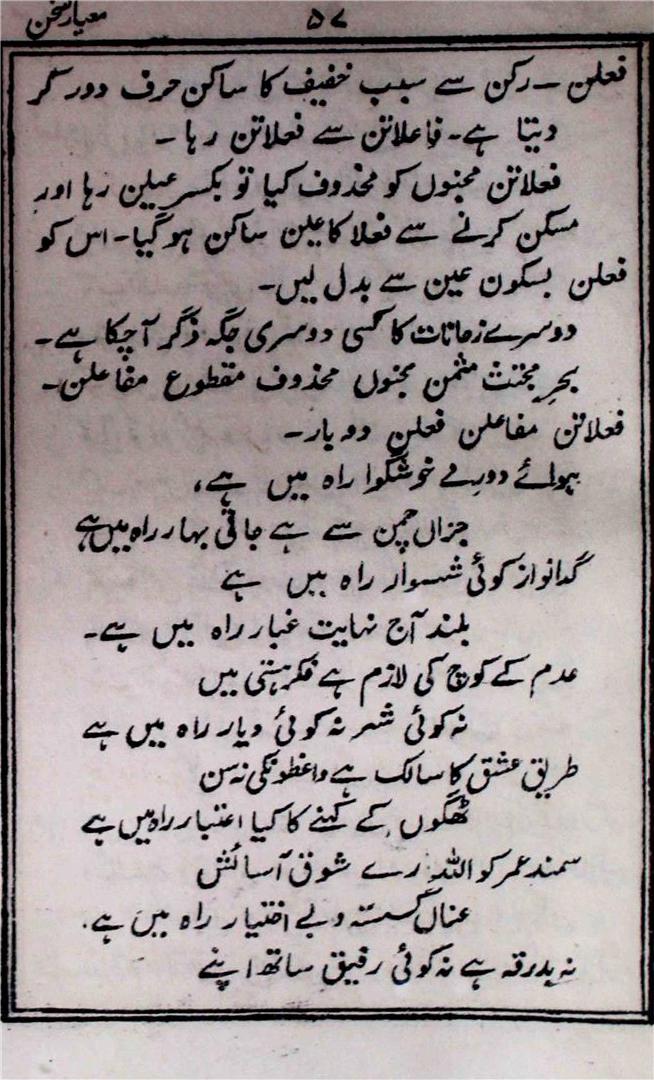 معیار سخن
۵۷
فعلن ـ رکن سے سبب خفیف کا ساکن حرف دور کر
دیتا ہے۔ فاعلاتن سے فعلاتن رہا ۔
فعلاتن مجنوں کو محذوف کیا تو بکسر عیلن رہا اور
مسکن کرنے سے فعلا کا عین ساکن ہو گیا۔ اس کو
فعلن بسکون عین سے بدل لیں۔
دوسرے زحافات کا کسی دوسری جگہ ذکر آ چکا ہے۔
بحرِ مجتث مثمن مجنوں محذوف مقطوع مفاعلن۔
فعلاتن مفاعلن فعلن دو بار۔
ہوائے دورِ مے خوشگوار راہ میں ہے،
خزاں چمن سے ہے جاتی بہار راہ میں ہے
گدانواز کوئی شہسوار راہ میں ہے
بلند آج نہایت غبار راہ میں ہے۔
عدم کے کوچ کی لازم ہے فکر ہستی میں
نہ کوئی شہر نہ کوئی دیار راہ میں ہے
طریق عشق کا سالک ہے واعظونکی نہ سن
ٹھگوں کے کہنے کا کیا اعتبار راہ میں ہے
سمند عمر کو اللہ رے شوق آسائش
عناں گسستہ و بے اختیار راہ میں ہے۔
نہ بدرقہ ہے نہ کوئی رفیق ساتھ اپنے